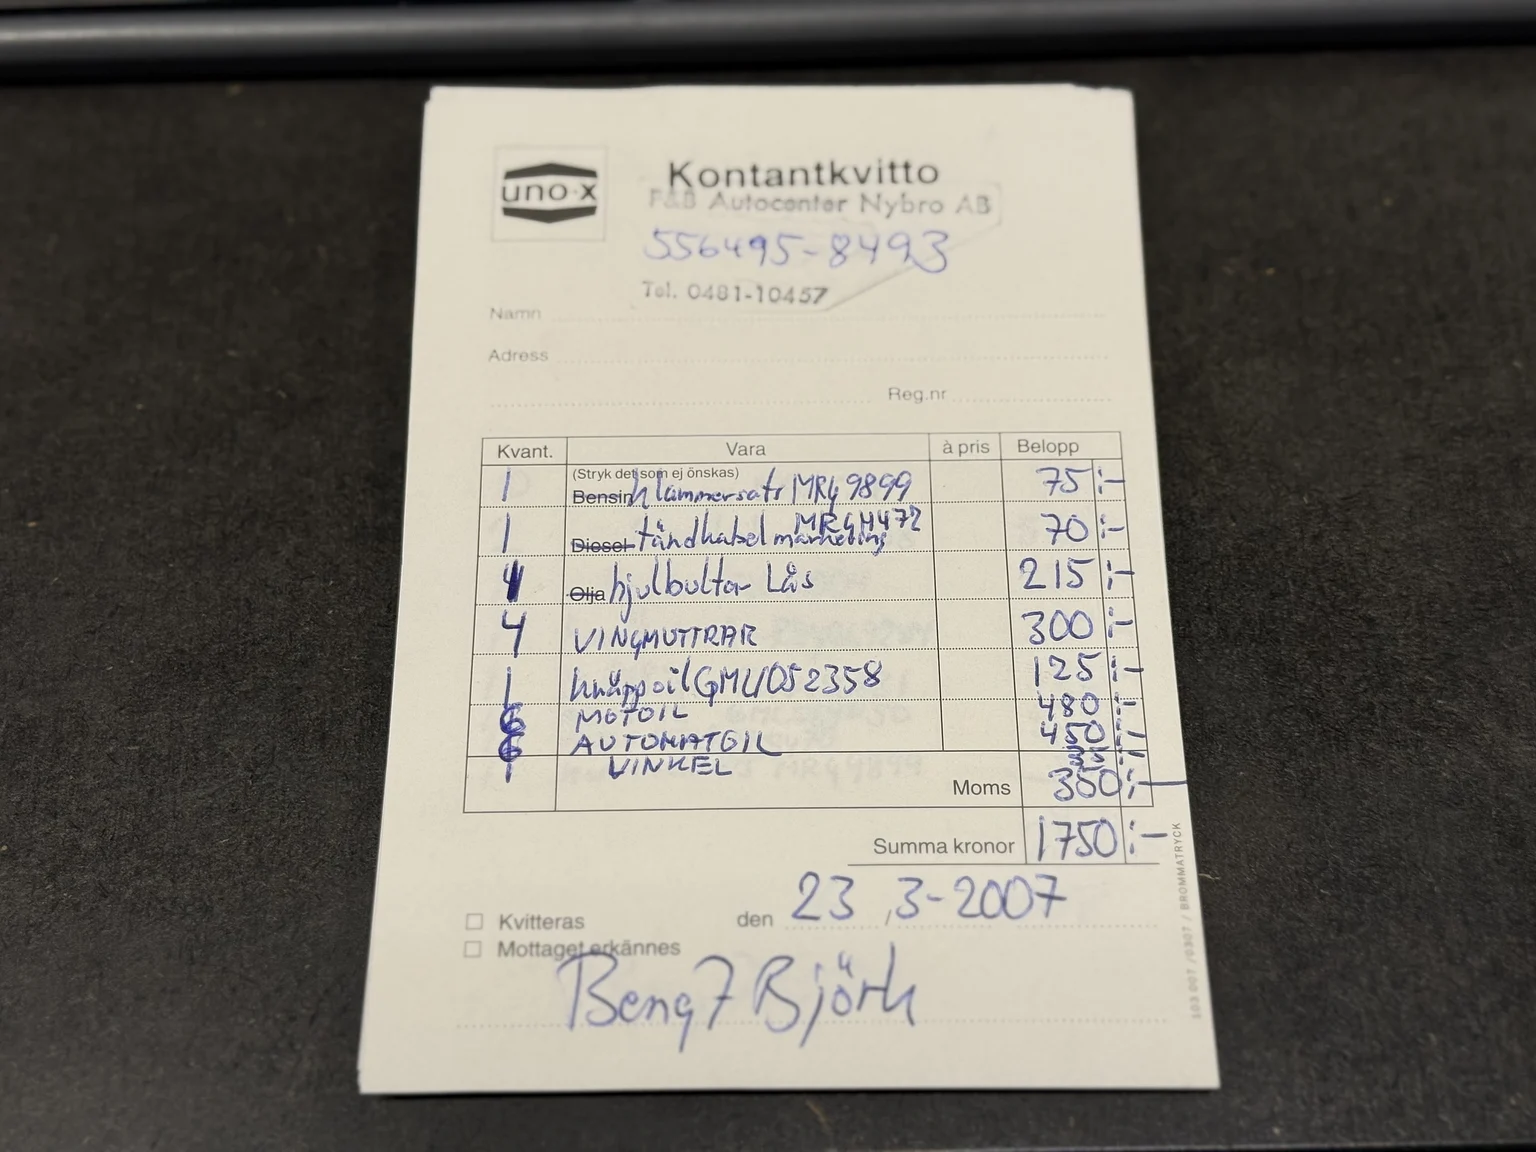 uno-x
Kontantkvitto
F&B Autocenter Nybro AB
556495-8493
Tel. 0481-10457
Namn
Adress
Reg.nr
Kvant. Vara à pris Belopp
(Stryk det som ej önskas)
1 Bensin klammersats MRG9899 75:-
MRGH472
1 Diesel tändkabel märkning 70:-
4 Olja hjulbultar Lås 215:-
4 VINGMUTTRAR 300:-
1 knäppoil GMU052358 125:-
6 MOTOIL 480:-
6 AUTOMATOIL 450:-
1 VINKEL 35:-
Moms 350:-
Summa kronor 1750:-
Kvitteras den 23 / 3-2007
Mottaget erkännes
Bengt Björk
103 007 /0307 / BROMMATRYCK